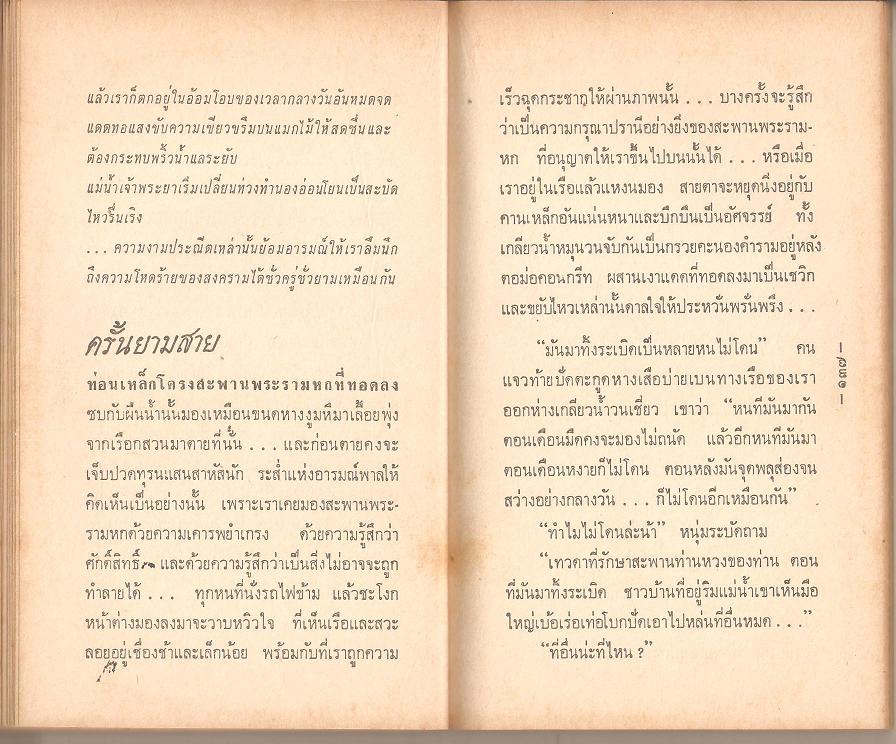 แล้วเราก็ตกอยู่ในอ้อมโอบของเวลากลางวันอันหมดจด
แดดทอแสงขับความเขียวขรึมบนแมกไม้ให้สดชื่นและ
ต้องกระทบพริ้วน้ำแลระยับ
แม่น้ำเจ้าพระยาเริ่มเปลี่ยนท่วงทำนองอ่อนโยนเป็นสะบัด
ไหวรื่นเริง
... ความงามประณีตเหล่านั้นย้อมอารมณ์ให้เราลืมนึก
ถึงความโหดร้ายของสงครามได้ชั่วครู่ชั่วยามเหมือนกัน
ครั้นยามสาย
ท่อนเหล็กโครงสะพานพระรามหกที่ทอดลง
ซบกับผืนน้ำนั้นมองเหมือนขนดหางงูมหึมาเลื้อยพุ่ง
จากเรือกสวนมาตายที่นั้น ... และก่อนตายคงจะ
เจ็บปวดทุรนแสนสาหัสนัก ระส่ำแห่งอารมณ์พาลให้
คิดเห็นเป็นอย่างนั้น เพราะเราเคยมองสะพานพระ-
รามหกด้วยความเคารพยำเกรง ด้วยความรู้สึกว่า
ศักดิ์สิทธิ์ และด้วยความรู้สึกว่าเป็นสิ่งไม่อาจจะถูก
ทำลายได้ ... ทุกหนที่นั่งรถไฟข้าม แล้วชะโงก
หน้าต่างมองลงมาจะวาบหวิวใจ ที่เห็นเรือและสวะ
ลอยอยู่เชื่องช้าและเล็กน้อย พร้อมกับที่เราถูกความ
เร็วฉุดกระชากให้ผ่านภาพนั้น ... บางครั้งจะรู้สึก
ว่าเป็นความกรุณาปรานีอย่างยิ่งของสะพานพระราม-
หก ที่อนุญาตให้เราขึ้นไปบนนั้นได้ ... หรือเมื่อ
เราอยู่ในเรือแล้วแหงนมอง สายตาจะหยุดนิ่งอยู่กับ
คานเหล็กอันแน่นหนาและบึกบึนเป็นอัศจรรย์ ทั้ง
เกลียวน้ำหมุนวนจับกันเป็นกรวยคะนองคำรามอยู่หลัง
ตอม่อคอนกรีท ผสานเงาแดดที่ทอดลงมาเป็นเชวิก
และขยับไหวเหล่านั้นดาลใจให้ประหวั่นพรั่นพรึง ...
“มันมาทิ้งระเบิดเป็นหลายหนไม่โดน” คน
แจวท้ายบัดตะกูดหางเสือบ่ายเบนทางเรือของเรา
ออกห่างเกลียวน้ำวนเชี่ยว เขาว่า “หนที่มันมากัน
ตอนเดือนมืดคงจะมองไม่ถนัด แล้วอีกหนทีมันมา
ตอนเดือนหงายก็ไม่โดน ตอนหลังมันจุดพลุส่องจน
สว่างอย่างกลางวัน ... ก็ไม่โดนอีกเหมือนกัน”
“ทำไมไม่โดนล่ะน้า” หนุ่มระบัดถาม
“เทวดาที่รักษาสะพานท่านหวงของท่าน ตอน
ที่มันมาทิ้งระเบิด ชาวบ้านที่อยู่ริมแม่น้ำเขาเห็นมือ
ใหญ่เบ้อเร่อเท่อโบกปัดเอาไปหล่นที่อื่นหมด ...”
“ที่อื่นน่ะที่ไหน ?”
— ๑๓๗ —